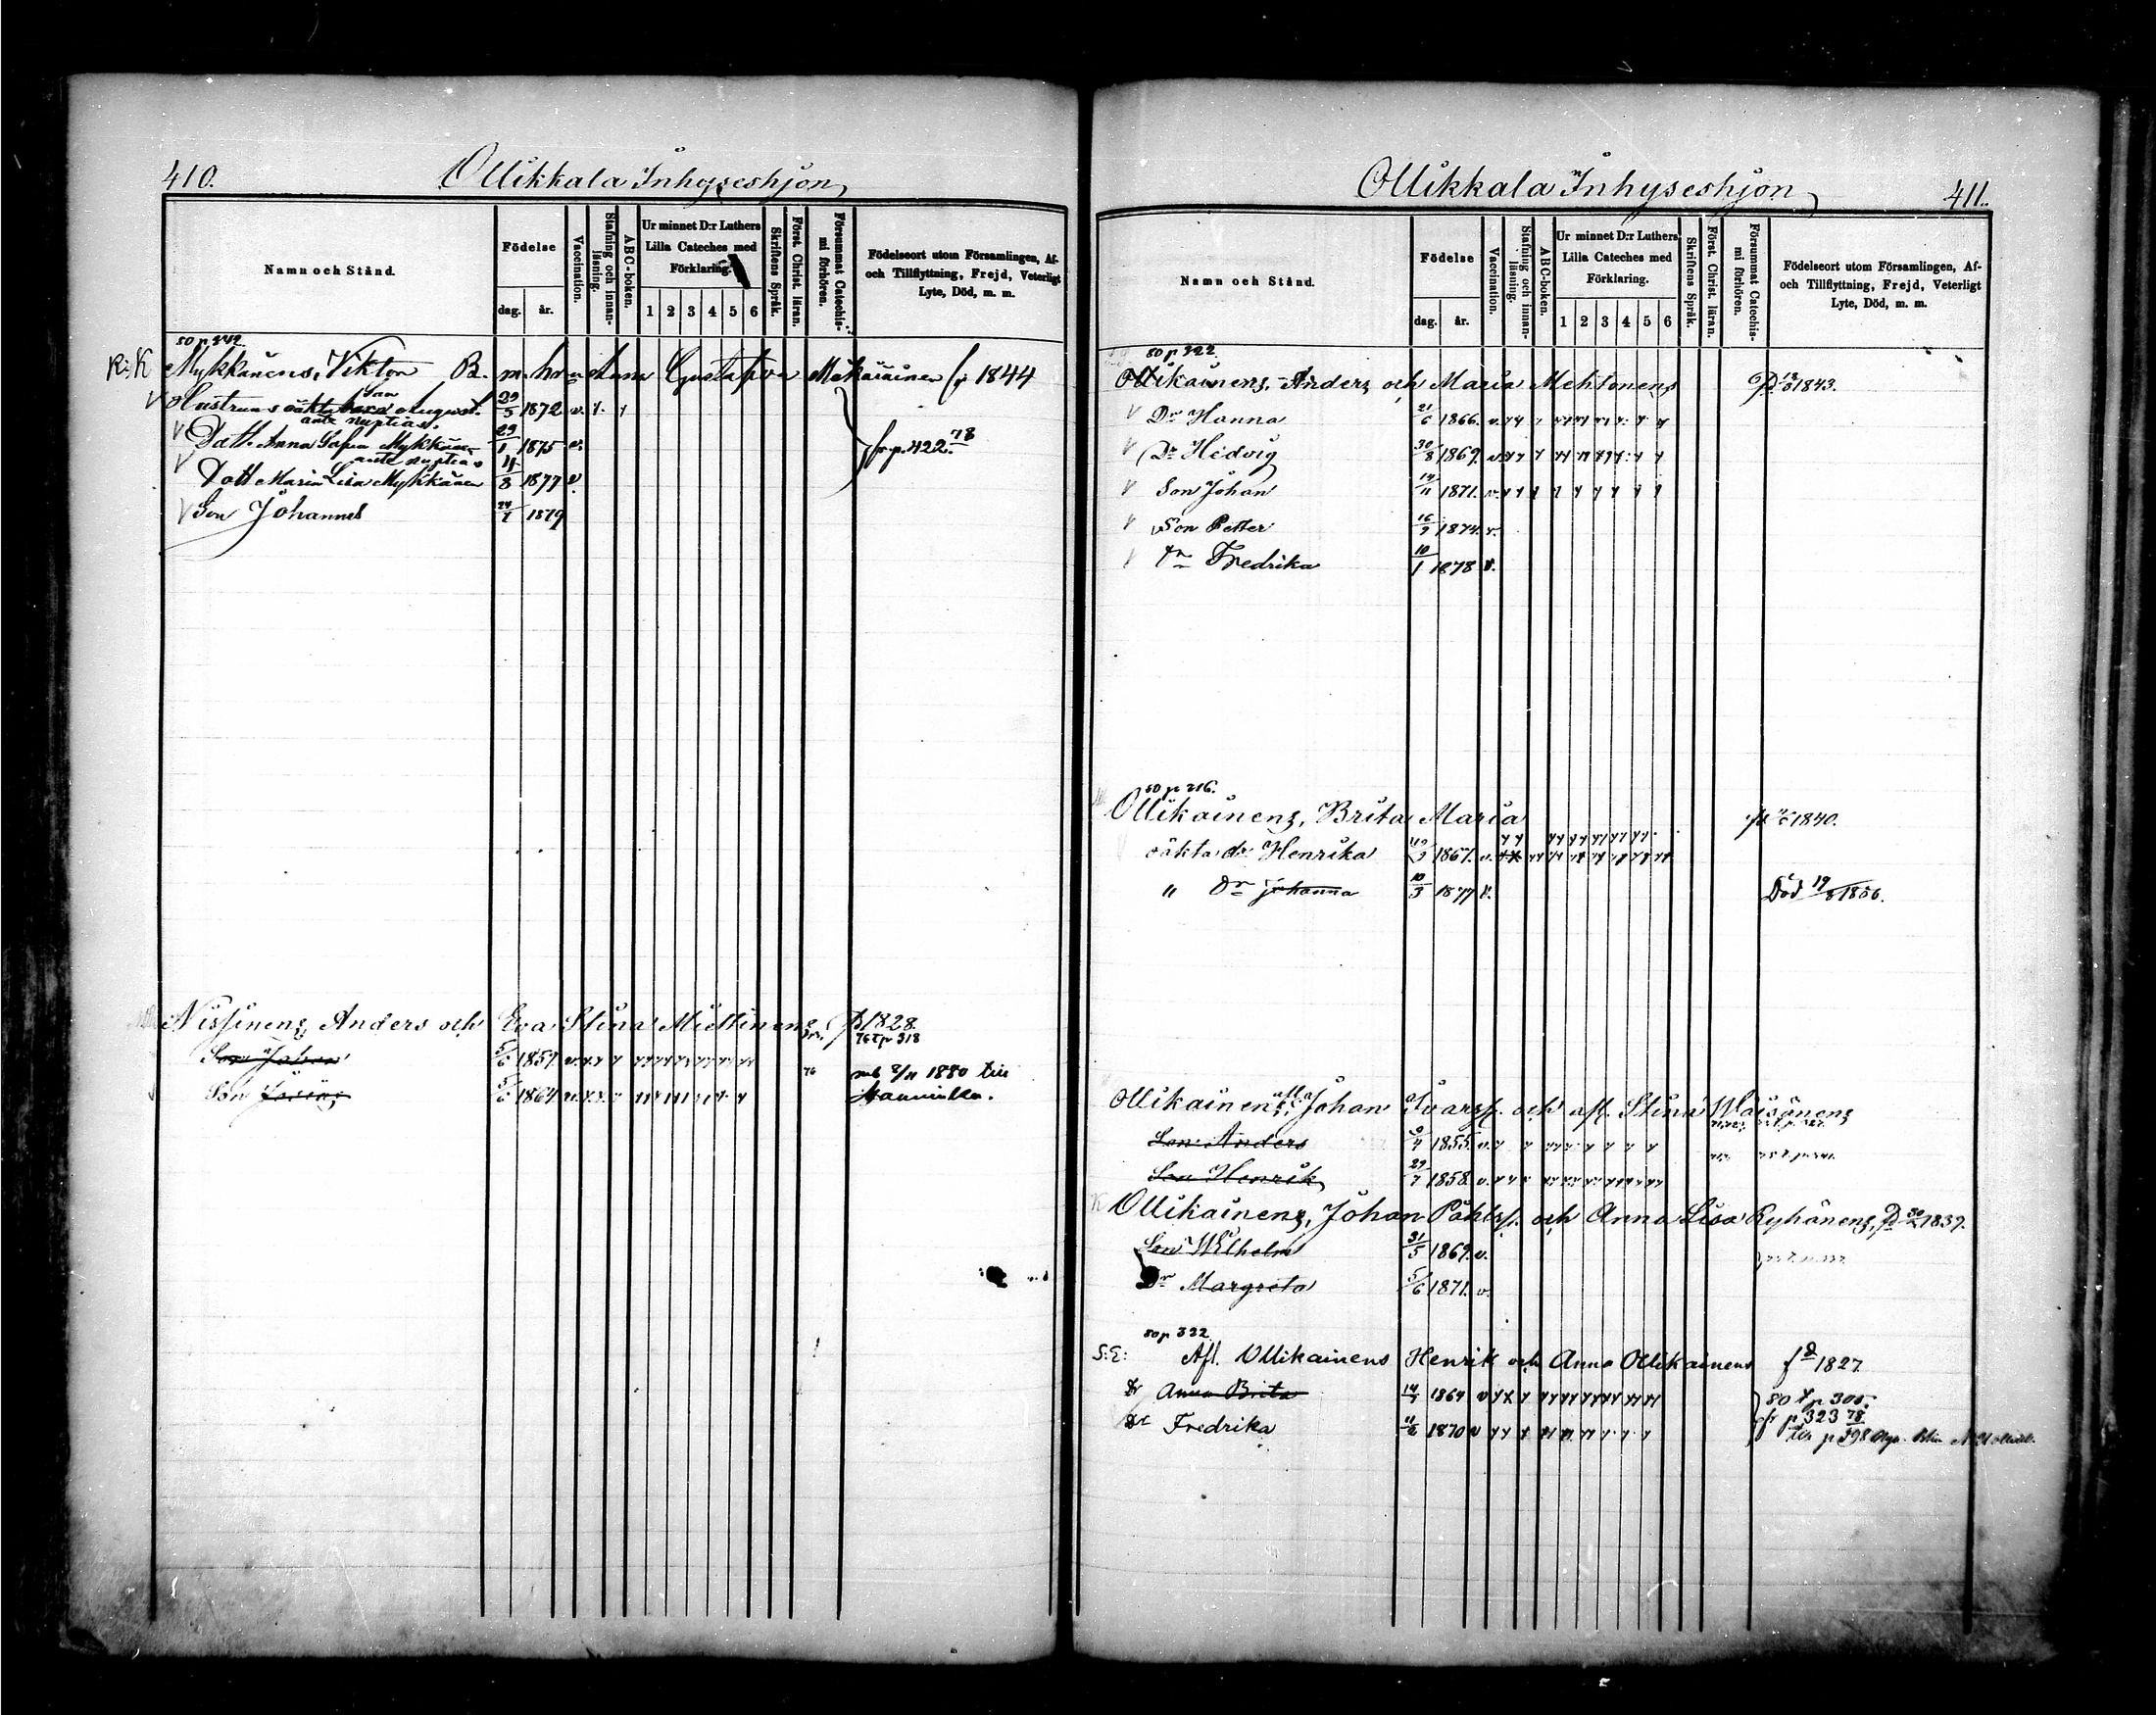 410.
Ollikkala Inhyseshjon
Namn och Stånd.
Födelse
dag. år.
Vaccination.
Stafning och innanläsning.
ABC-boken.
Ur minnet D:r Luthers
Lilla Cateches med
Förklaring.
1 2 3 4 5 6
Skriftens Språk.
Först. Christ. läran.
Försummat Catechismi förhören.
Födelseort utom Församlingen, Af-
och Tillflyttning, Frejd, Veterligt
Lyte, Död, m. m.
80 p 242
R:K Mykkänens, Viktor B. m. hu Anna Gustafva 1844
Hustruns oäkta son August. 29/5 1872 v.
ante nuptias.
Dott. Anna Sofia Mykkänen 29/1 1875 v. fr p. 422. 78
ante nuptias
Dott Maria Lisa Mykkänen 4/8 1877 v
Son Johannes 24/1 1879
Nissinens, Anders och Eva Stina Miettinens 1828.
76 t p 318
Son Johan 5/6 1857 v.
76 8/11 1880 till
Son 5/6 1864 v.
411.
Ollikkala Inhyseshjon
Namn och Stånd.
Födelse
dag. år.
Vaccination.
Stafning och innanläsning.
ABC-boken.
Ur minnet D:r Luthers
Lilla Cateches med
Förklaring.
1 2 3 4 5 6
Skriftens Språk.
Först. Christ. läran.
Försummat Catechismi förhören.
Födelseort utom Församlingen, Af-
och Tillflyttning, Frejd, Veterligt
Lyte, Död, m. m.
80 p 322.
Ollikainens, Anders och Maria Mehtonens 1843.
Dr Hanna 21/6 1866. v.
Dr Hedvig 30/8 1869. v.
Son Johan 14/11 1871. v.
Son Petter 16/9 1874. v.
Dr Fredrika 10/1 1878 v.
80 p 216.
Ollikainens, Brita Maria 1840.
oäkta dr Henrika 1867. v.
" Dr Johanna 10/3 1877 v. Död 19/8 1886.
Ollikainens, Johan Ivarsf. och afl. Stina Waisänens
Son Anders 1855. v.
Son Henrik 29/7 1858. v.
Ollikainens, Johan Påhlsf. och Anna Lisa Ryhänens, 1839.
Son Wilhelm 31/5 1869. v.
Dr Margreta 5/6 1871. v.
80 p 322
S:E: Afl. Ollikainens Henrik och Anna Ollikainens 1827
Dr Anna Brita 14/7 1864 v 80 t p 305.
fr p 323 78
Dr Fredrika 11/2 1870 v till p 398